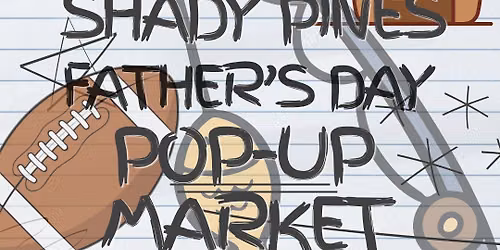 SHADY PINES
FATHER'S DAY
POP-UP
MARKET